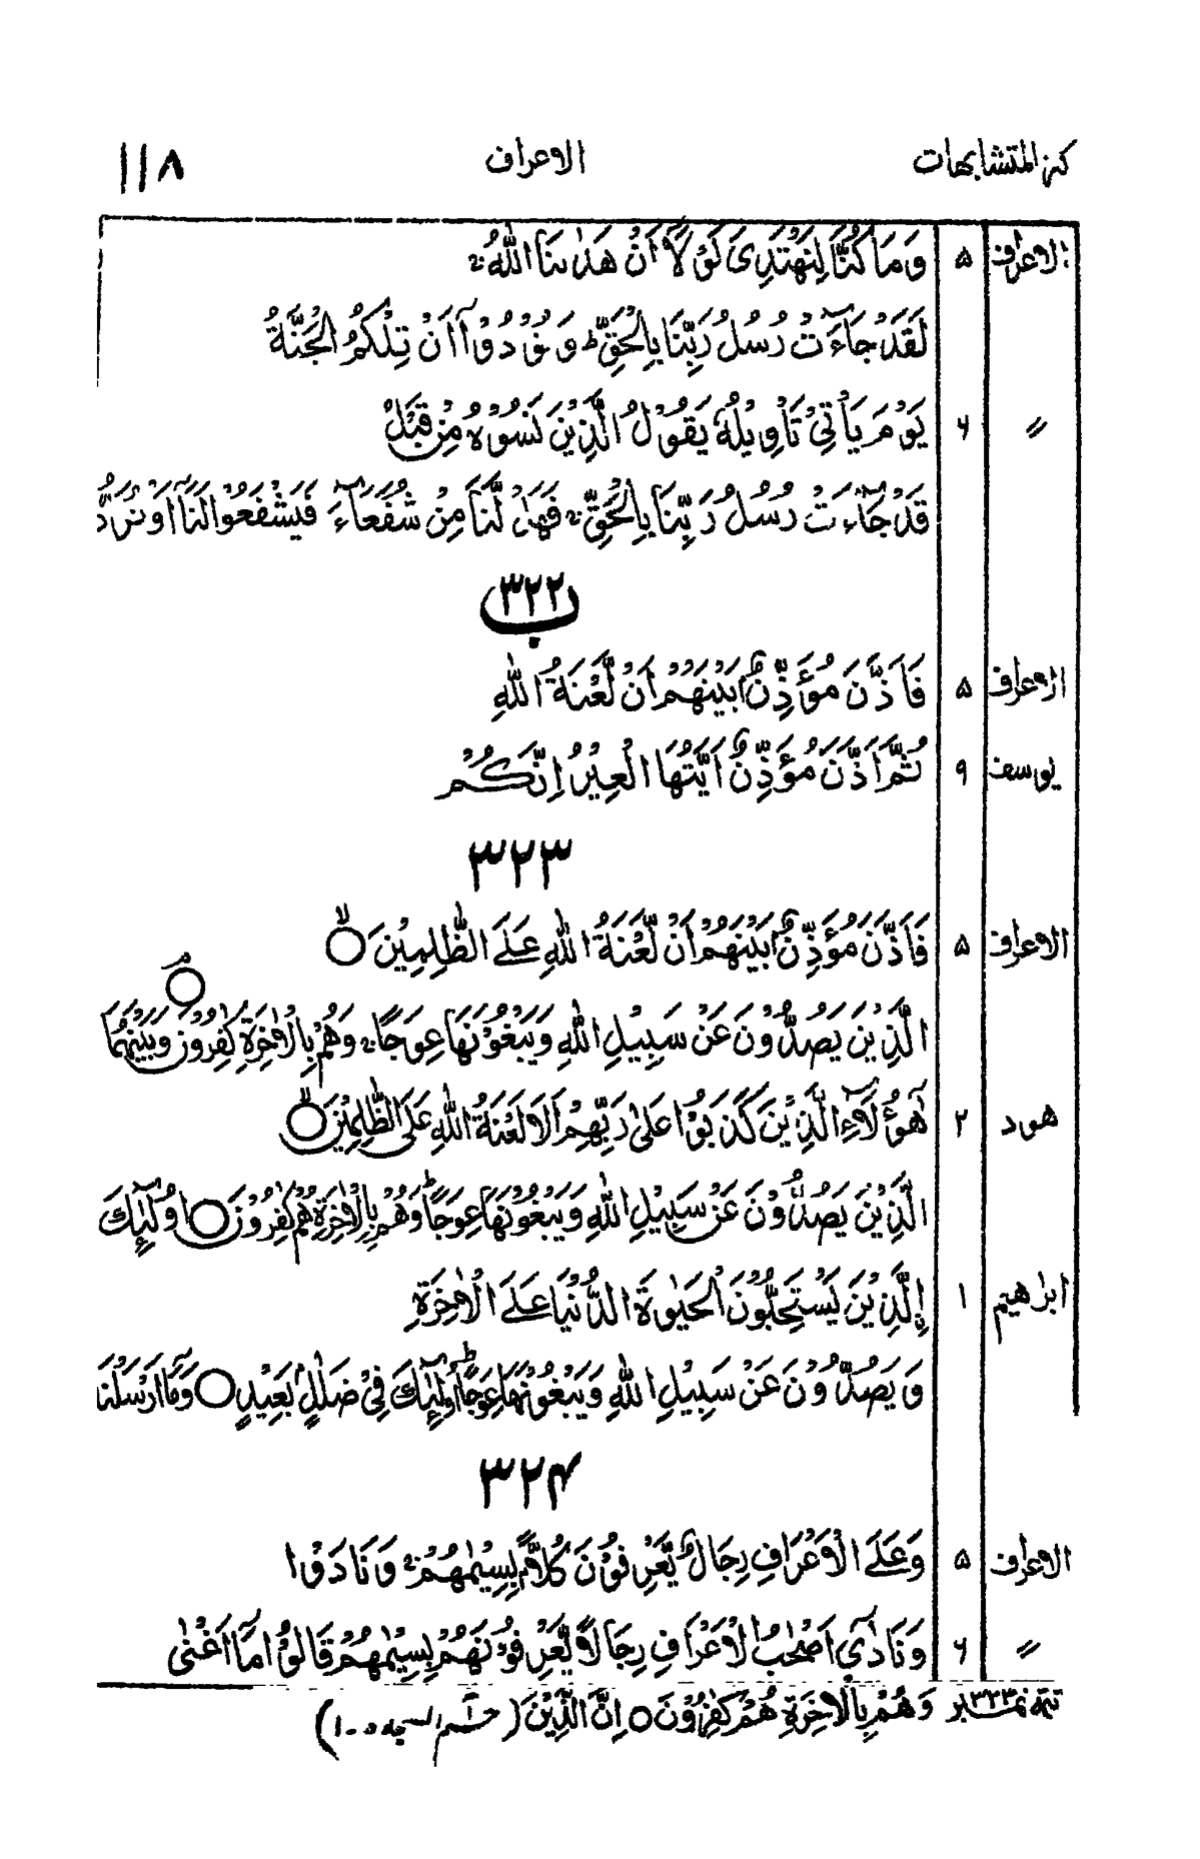 كنز المتشابهات الاعراف ۱۱۸
الاعراف ۵ وَمَا كُنَّا لِنَهْتَدِىَ لَوْ لَاۤ اَنْ هَدٰىنَا اللّٰهُ ۚ
لَقَدْ جَآءَتْ رُسُلُ رَبِّنَا بِالْحَقِّ ؕ وَ نُوْدُوْۤا اَنْ تِلْكُمُ الْجَنَّةُ
〃 ۶ يَوْمَ يَاْتِىْ تَاْوِيْلُهٗ يَقُوْلُ الَّذِيْنَ نَسُوْهُ مِنْ قَبْلُ
قَدْ جَآءَتْ رُسُلُ رَبِّنَا بِالْحَقِّ ۚ فَهَلْ لَّنَا مِنْ شُفَعَآءَ فَيَشْفَعُوْا لَنَاۤ اَوْ نُرَدُّ
۳۲۲ ب
الاعراف ۵ فَاَذَّنَ مُؤَذِّنٌۢ بَيْنَهُمْ اَنْ لَّعْنَةُ اللّٰهِ
يوسف ۹ ثُمَّ اَذَّنَ مُؤَذِّنٌ اَيَّتُهَا الْعِيْرُ اِنَّكُمْ
۳۲۳
الاعراف ۵ فَاَذَّنَ مُؤَذِّنٌۢ بَيْنَهُمْ اَنْ لَّعْنَةُ اللّٰهِ عَلَى الظّٰلِمِيْنَ ۙ○
الَّذِيْنَ يَصُدُّوْنَ عَنْ سَبِيْلِ اللّٰهِ وَيَبْغُوْنَهَا عِوَجًا ۚ وَهُمْ بِالْاٰخِرَةِ كٰفِرُوْنَ ○ۘ وَبَيْنَهُمَا
هود ۲ هٰۤؤُلَآءِ الَّذِيْنَ كَذَبُوْا عَلٰى رَبِّهِمْ اَلَا لَعْنَةُ اللّٰهِ عَلَى الظّٰلِمِيْنَ ۙ○
الَّذِيْنَ يَصُدُّوْنَ عَنْ سَبِيْلِ اللّٰهِ وَيَبْغُوْنَهَا عِوَجًا ؕ وَهُمْ بِالْاٰخِرَةِ هُمْ كٰفِرُوْنَ ○ اُولٰٓئِكَ
ابراهيم ۱ اِلَّذِيْنَ يَسْتَحِبُّوْنَ الْحَيٰوةَ الدُّنْيَا عَلَى الْاٰخِرَةِ
وَ يَصُدُّوْنَ عَنْ سَبِيْلِ اللّٰهِ وَيَبْغُوْنَهَا عِوَجًا ؕ اُولٰٓئِكَ فِىْ ضَلٰلٍۢ بَعِيْدٍ ○ وَمَاۤ اَرْسَلْنَا
۳۲۴
الاعراف ۵ وَعَلَى الْاَعْرَافِ رِجَالٌ يَّعْرِفُوْنَ كُلًّاۢ بِسِيْمٰىهُمْ ۚ وَنَادَوْا
〃 ۶ وَنَادٰۤى اَصْحٰبُ الْاَعْرَافِ رِجَالًا يَّعْرِفُوْنَهُمْ بِسِيْمٰىهُمْ قَالُوْا مَاۤ اَغْنٰى
تتمه نمبر ۳۲۳ وَهُمْ بِالْاٰخِرَةِ هُمْ كٰفِرُوْنَ ○ اِنَّ الَّذِيْنَ (حٰـمۤ السجده - ۱)